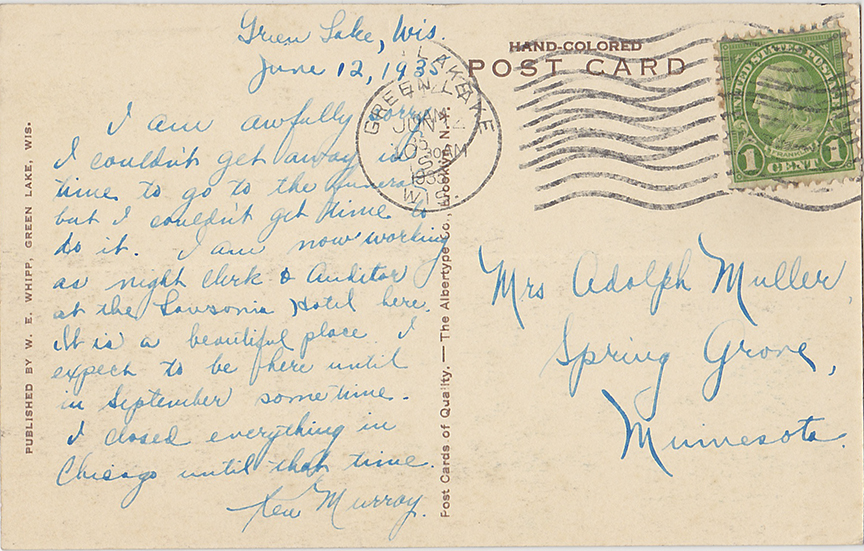 Green Lake, Wis.
June 12, 1935.
I am awfully sorry
I couldn't get away in
time to go to the funeral
but I couldn't get time to
do it. I am now working
as night clerk & Auditor
at the Lawsonia Hotel here.
It is a beautiful place I
expect to be here until
in September sometime.
I closed everything in
Chicago until that time.
Murray.
PUBLISHED BY W. E. WHIPP, GREEN LAKE, WIS.
Post Cards of Quality. — The Albertype Co., Brooklyn, N.Y.
HAND-COLORED
POST CARD
GREEN LAKE
JUN 12
30 AM
1935
WIS
UNITED STATES POSTAGE
FRANKLIN
1 CENT 1
Mrs Adolph Muller,
Spring Grove,
Minnesota.